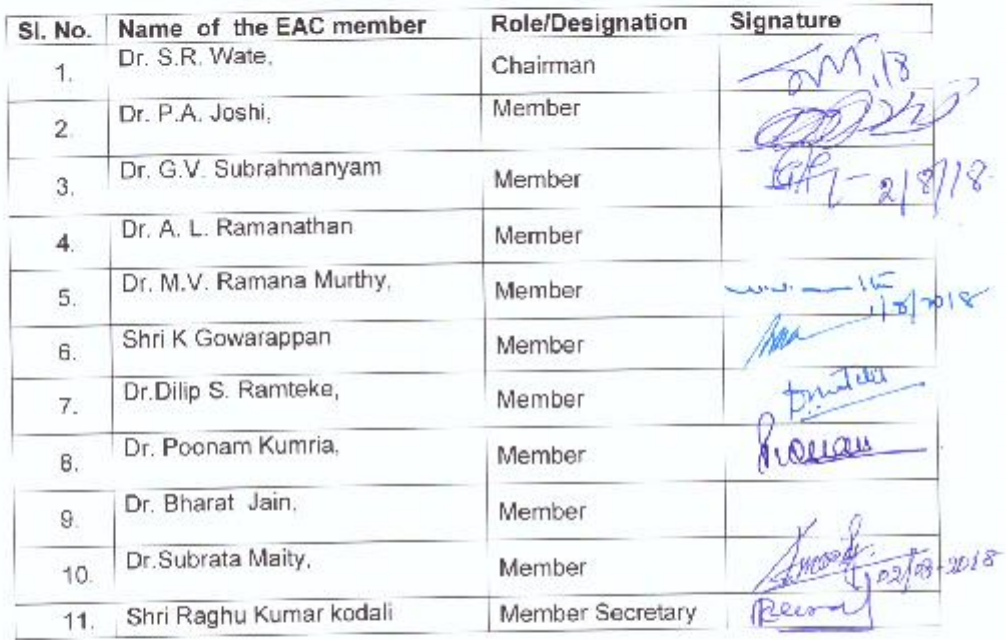 Sl. No. Name of the EAC member Role/Designation Signature
1. Dr. S.R. Wate, Chairman
2. Dr. P.A. Joshi, Member
3. Dr. G.V. Subrahmanyam Member 2/8/18
4. Dr. A. L. Ramanathan Member
5. Dr. M.V. Ramana Murthy, Member 1/8/2018
6. Shri K Gowarappan Member
7. Dr.Dilip S. Ramteke, Member
8. Dr. Poonam Kumria, Member
9. Dr. Bharat Jain, Member
10. Dr.Subrata Maity, Member 02/08-2018
11. Shri Raghu Kumar kodali Member Secretary